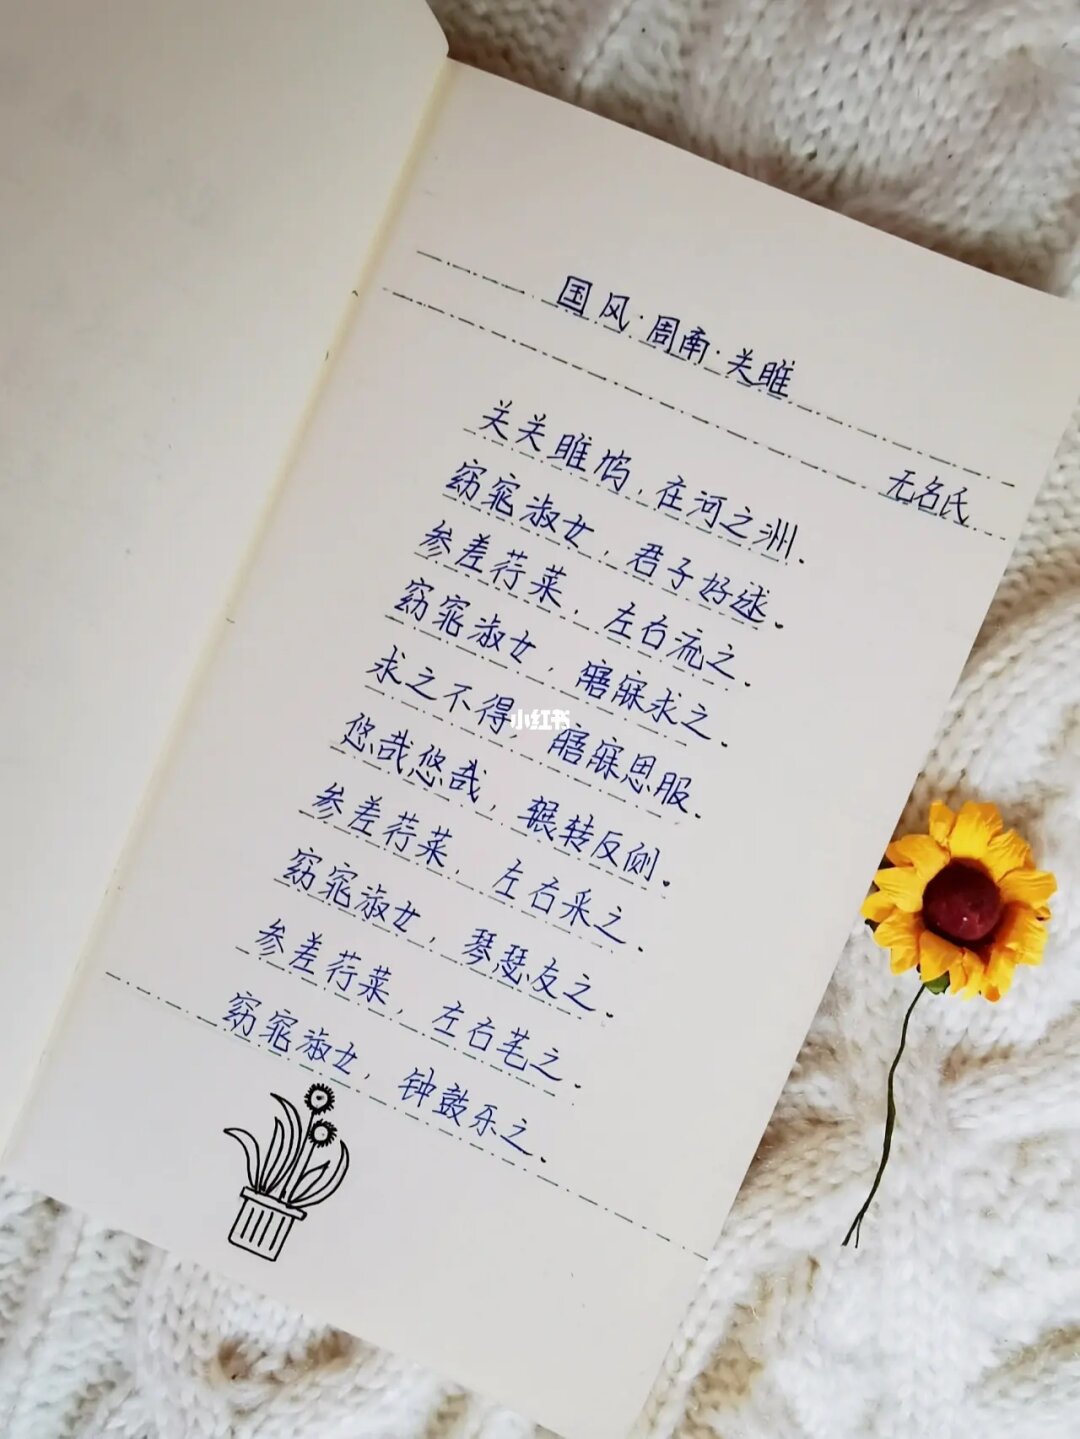 国风·周南·关雎
无名氏
关关雎鸠,在河之洲.
窈窕淑女,君子好逑.
参差荇菜,左右流之.
窈窕淑女,寤寐求之.
求之不得,寤寐思服.
悠哉悠哉,辗转反侧.
参差荇菜,左右采之.
窈窕淑女,琴瑟友之.
参差荇菜,左右芼之.
窈窕淑女,钟鼓乐之.
小红书